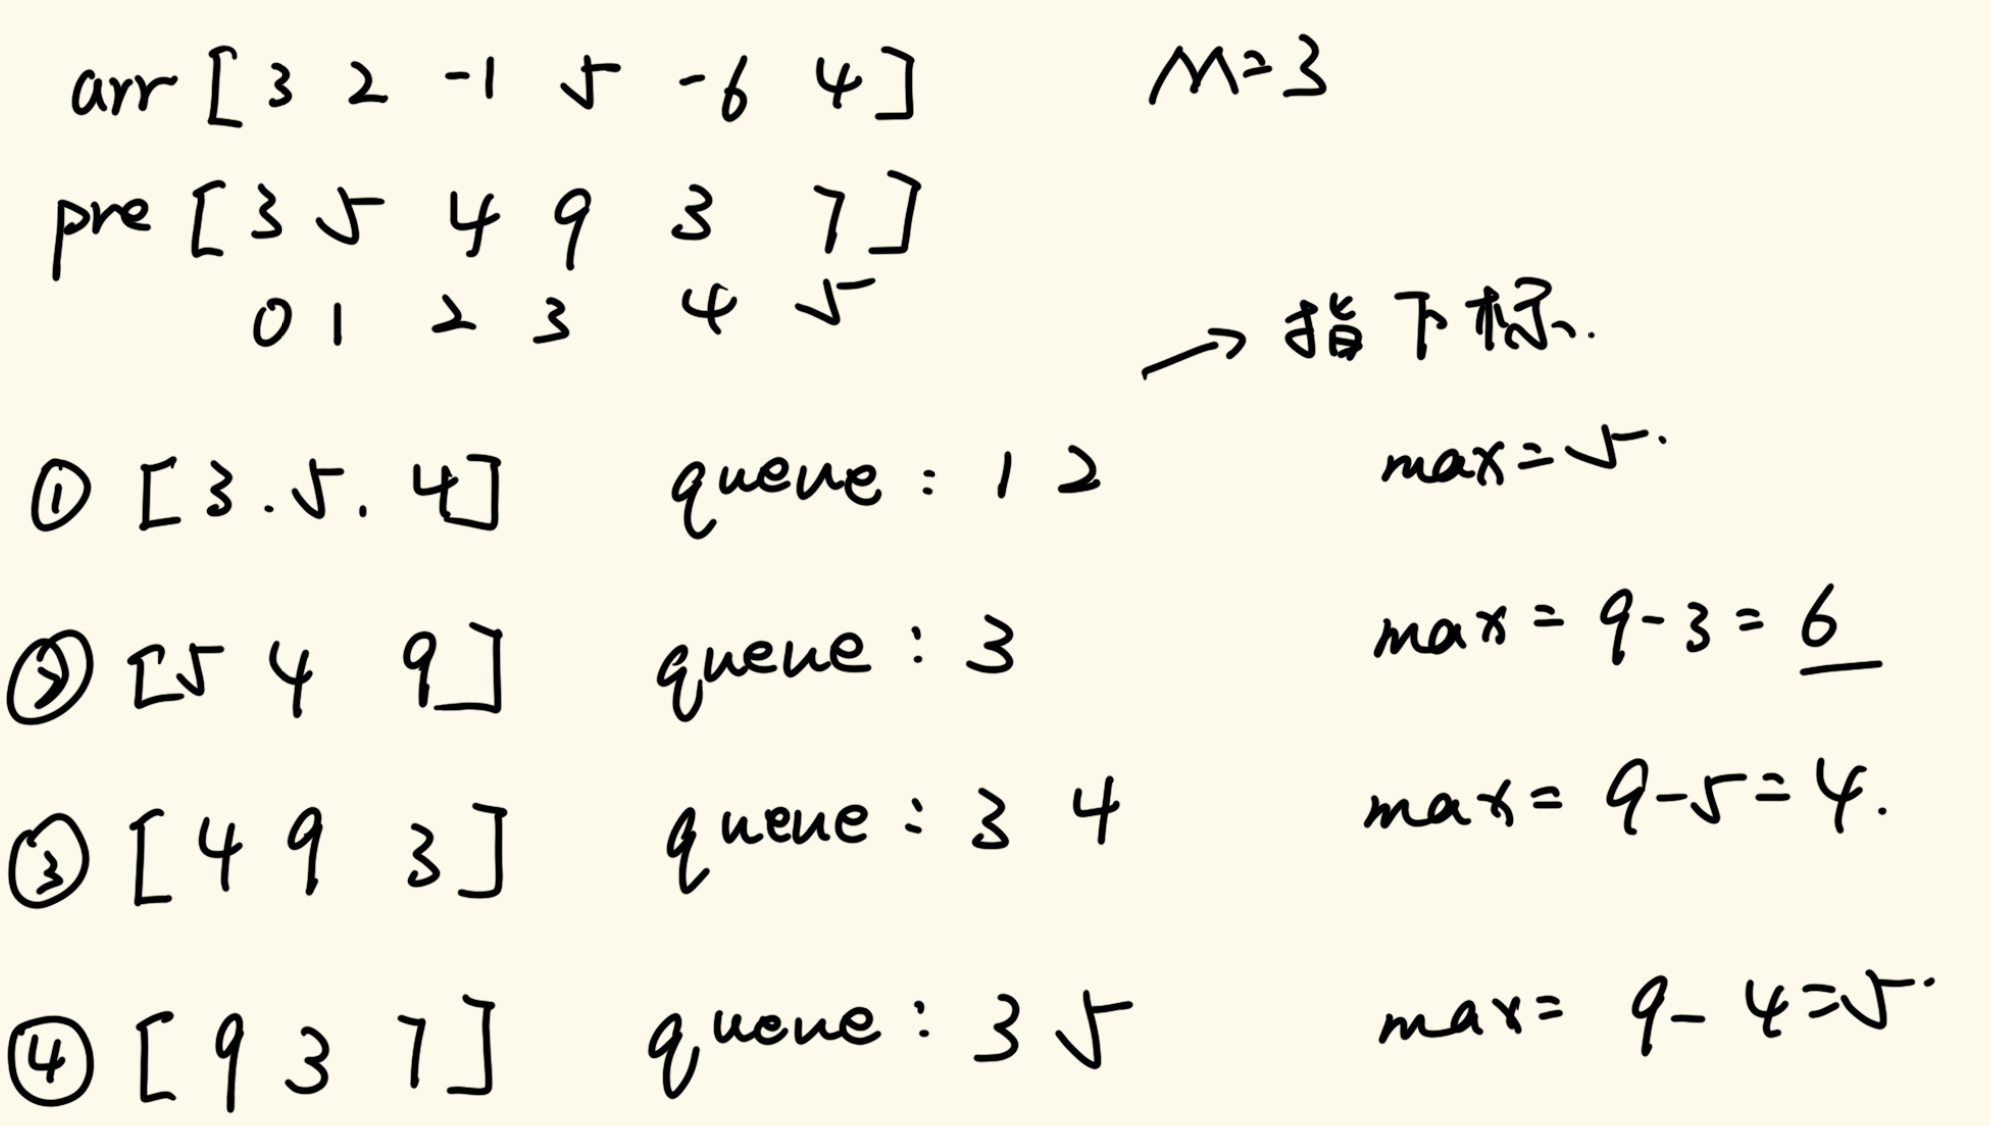 arr [ 3 2 -1 5 -6 4 ] M=3
pre [ 3 5 4 9 3 7 ]
0 1 2 3 4 5
→ 指下标.
① [ 3 . 5 . 4 ] queue : 1 2 max = 5 .
② [ 5 4 9 ] queue : 3 max = 9 - 3 = 6
③ [ 4 9 3 ] queue : 3 4 max = 9 - 5 = 4 .
④ [ 9 3 7 ] queue : 3 5 max = 9 - 4 = 5 .